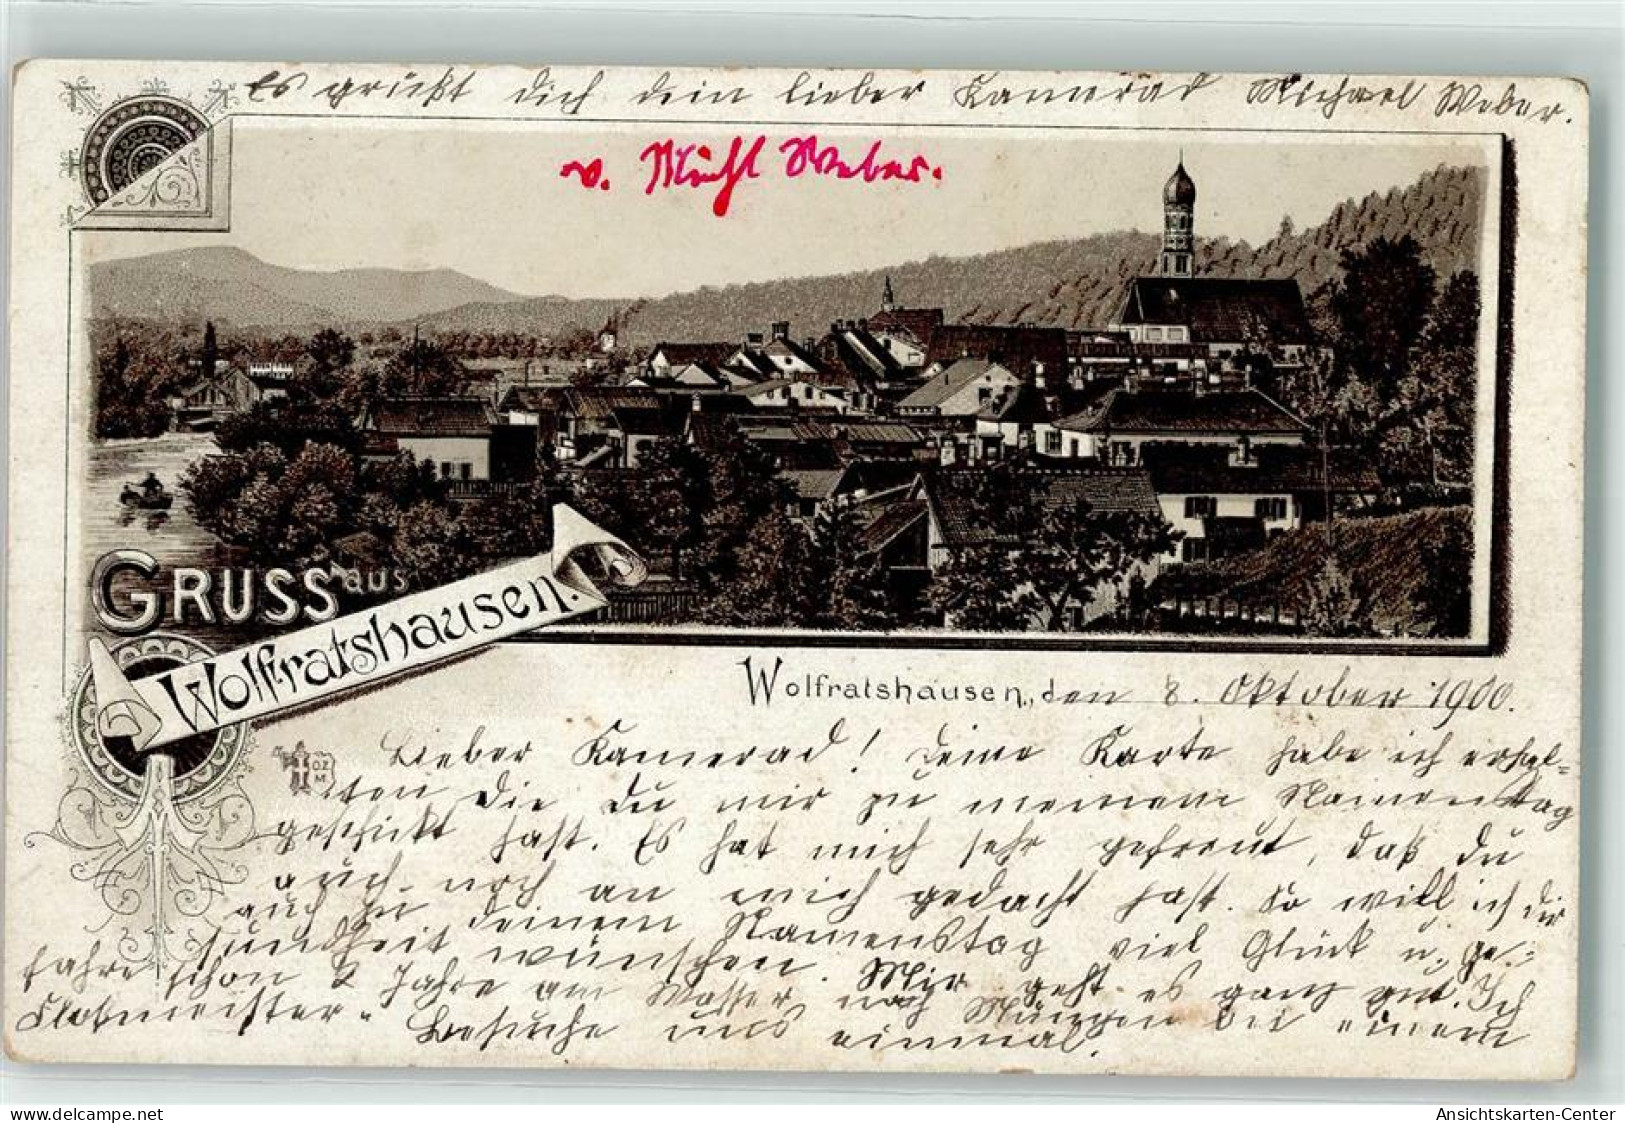 Es grüßt dich dein lieber Kamerad Michael Weber.
v. Michl Weber.
GRUSS aus
Wolfratshausen.
Wolfratshausen, den 8. Oktober 1900.
O.Z.
M.
Lieber Kamerad! Deine Karte habe ich erhal=
ten die du mir zu meinem Namenstag
geschickt hast. Es hat mich sehr gefreut, daß du
auch noch an mich gedacht hast. So will ich dir
auch zu deinem Namenstag viel Glück u. Ge=
sundheit wünschen. Mir geht es ganz gut. Ich
fahre schon 2 Jahre am Wasser nach München bei einem
Floßmeister. Besuche uns einmal.
delcampe.net
Ansichtskarten-Center